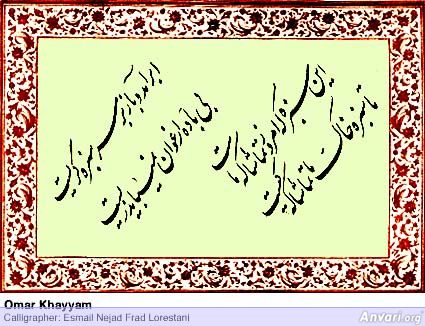 ابر آمد و باز بر سر سبزه گریست
بی باده ارغوان نمیباید زیست
این سبزه که امروز تماشاگه ماست
تا سبزه خاک ما تماشاگه کیست
Omar Khayyam
Calligrapher: Esmail Nejad Frad Lorestani
Anvari.org